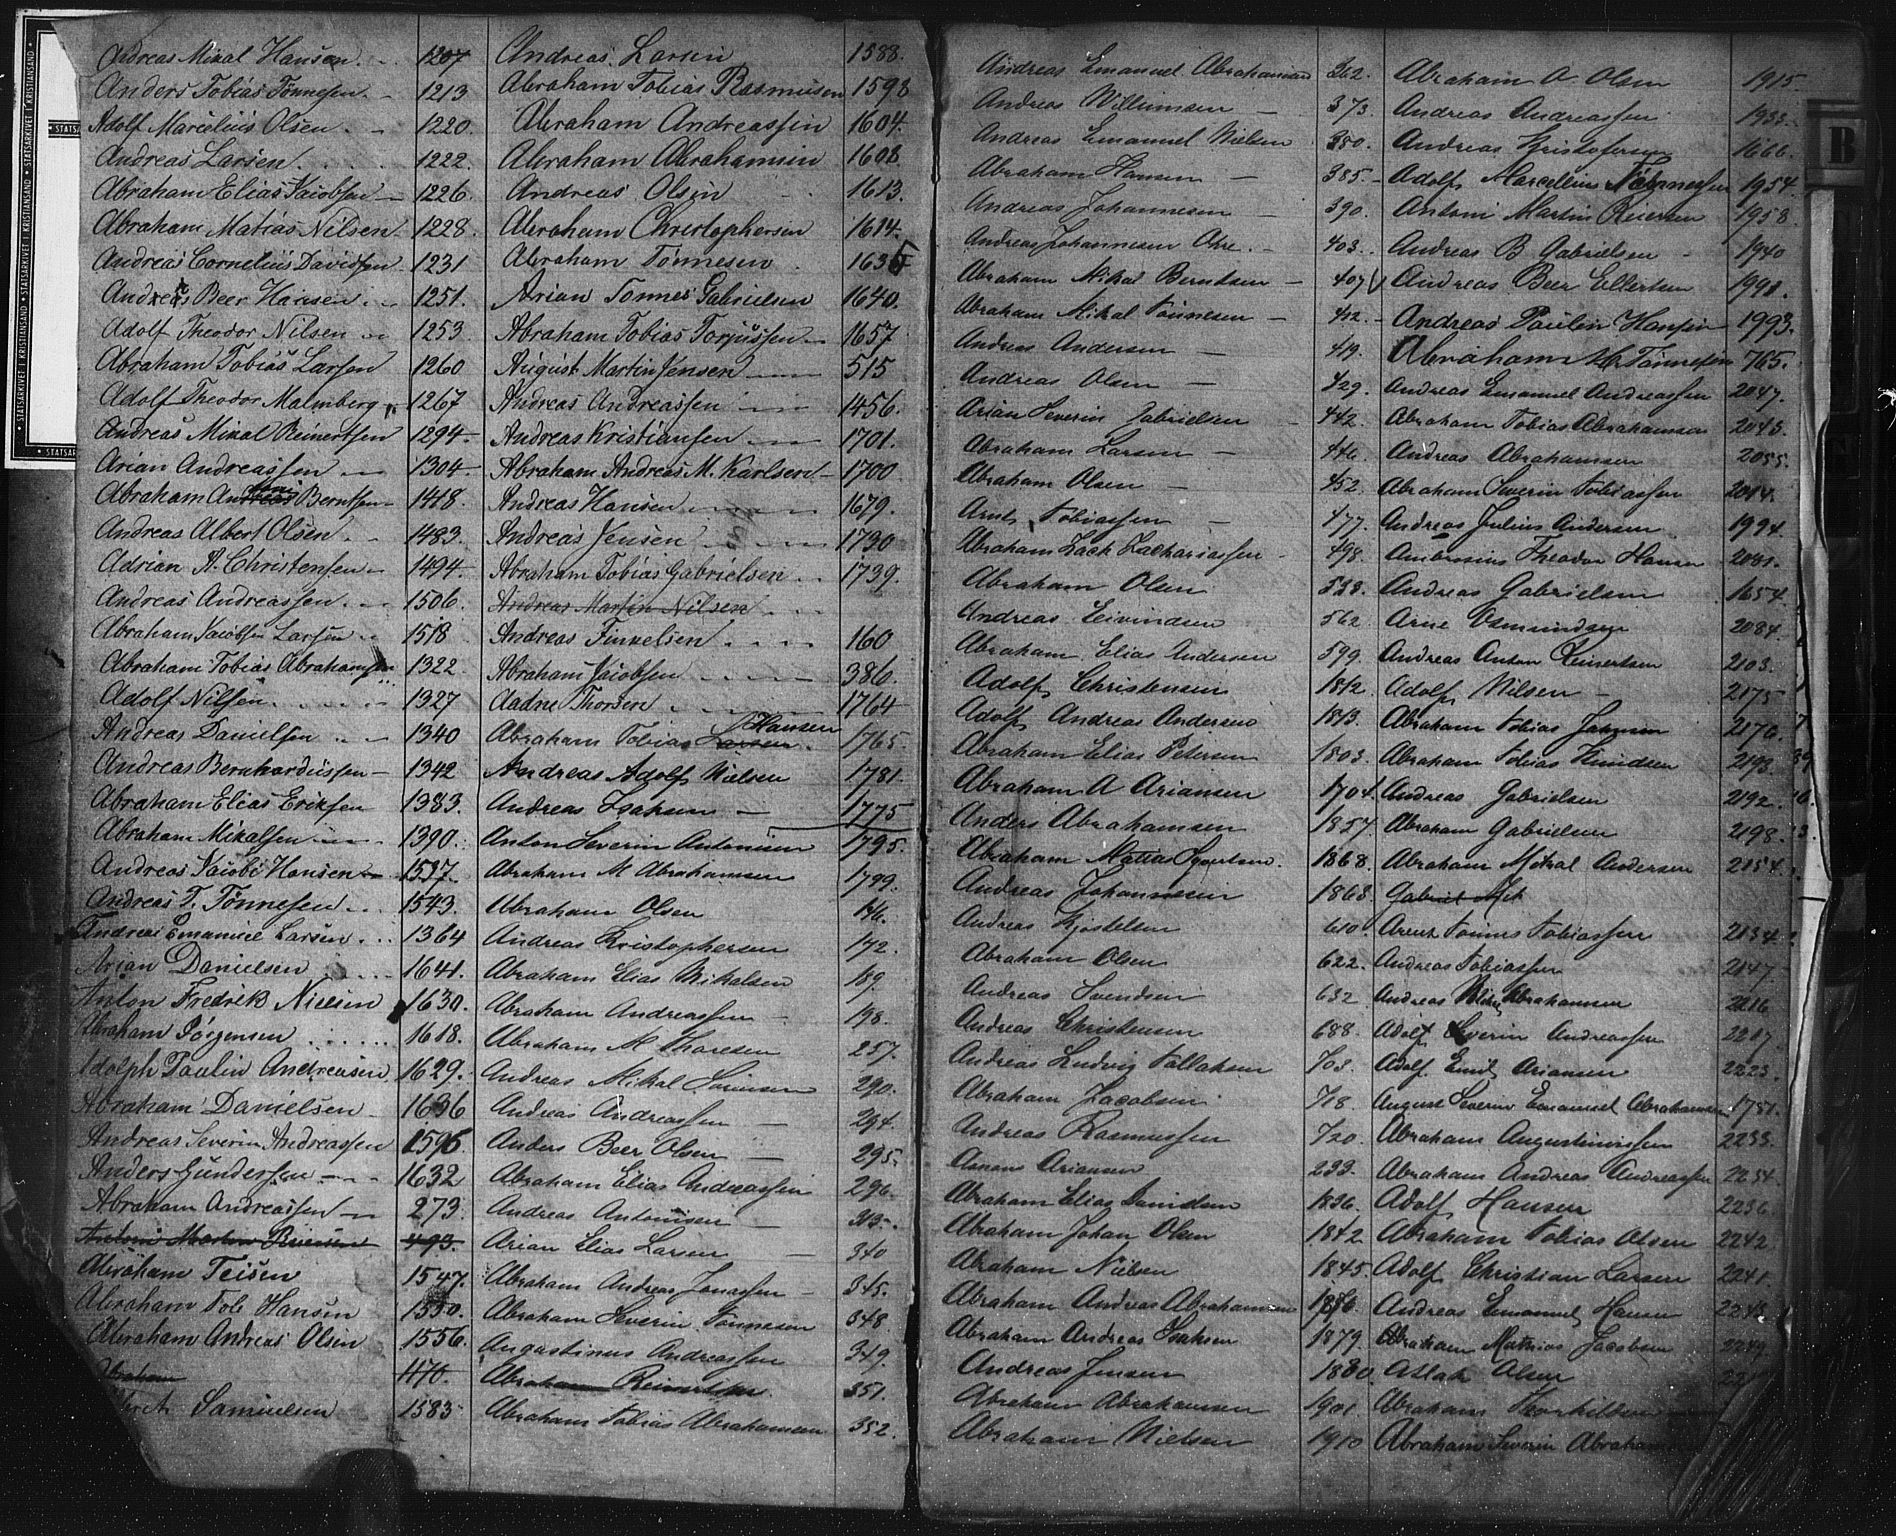 Andreas Mikal Hansen 1207
Anders Tobias Tønnesen 1213
Adolf Marcelius Olsen 1220
Andreas Larsen 1222
Abraham Elias Jacobsen 1226
Abraham Matias Nilsen 1228
Andreas Cornelius Davidsen 1231
Andreas Beer Hansen 1251
Adolf Theodor Nilsen 1253
Abraham Tobias Larsen 1260
Adolf Theodor Malmberg 1267
Andreas Mikal Reinertsen 1294
Arian Andreassen 1304
Abraham Berntsen 1418
Andreas Albert Olsen 1483
Adrian A. Christensen 1494
Andreas Andreassen 1506
Abraham Jacobsen Larsen 1518
Abraham Tobias Abrahamsen 1322
Adolf Nilsen 1327
Andreas Danielsen 1340
Andreas Bernhardussen 1342
Abraham Elias Eriksen 1383
Abraham Mikalsen 1390
Andreas Jacobi Hansen 1537
Andreas T. Tønnesen 1543
Andreas Emanuel Larsen 1364
Arian Danielsen 1641
Anton Fredrik Nielsen 1630
Abraham Jørgensen 1618
Adolph Paulin Andreasen 1629
Abraham Danielsen 1636
Andreas Severin Andreassen 1595
Anders Gundersen 1632
Abraham Andreassen 273
Antoni Martin Reiersen 493
Abraham Teisen 1547
Abraham Tob Hansen 1550
Abraham Andreas Olsen 1556
Abraham 470
Samuelsen 1583
Andreas Larsen 1588
Abraham Tobias Rasmusen 1598
Abraham Andreassen 1604
Abraham Abrahamsen 1608
Andreas Olsen 1613
Abraham Christophersen 1614
Abraham Tønnesen 1635
Arian Tonnes Gabrielsen 1640
Abraham Tobias Torjussen 1657
August Martin Jensen 515
Andreas Andreassen 1456
Andreas Kristiansen 1701
Abraham Andreas M. Karlsen 1700
Andreas Hansen 1679
Andreas Jensen 1730
Abraham Tobias Gabrielsen 1739
Andreas Martin Nilsen
Andreas Finkelsen 160
Abraham Jacobsen 386
Aadne Thorsen 1764
Abraham Tobias Larsen Hansen 1765
Andreas Adolf Nielsen 1781
Andreas Isaksen 1775
Anton Severin Antonisen 1795
Abraham M Abrahamsen 1799
Abraham Olsen 146
Andreas Kristophersen 172
Abraham Elias Mikalsen 189
Abraham Andreassen 198
Abraham M Thoresen 257
Andreas Mikal Sørensen 290
Andreas Andreassen 294
Anders Beer Olsen 295
Abraham Elias Andreassen 296
Andreas Antonisen 313
Arian Elias Larsen 340
Abraham Andreas Jonassen 345
Abraham Severin Tønnesen 348
Augustinus Andreassen 349
Abraham Reinertsen 351
Abraham Tobias Abrahamsen 352
Andreas Emanuel Abrahamsen 362
Andreas Willumsen 373
Andreas Emanuel Nielsen 380
Abraham Hansen 385
Andreas Johannesen 390
Andreas Johannesen Ore 403
Abraham Mikal Berntsen 407
Abraham Mikal Tønnesen 412
Andreas Andersen 419
Andreas Olsen 429
Arian Severin Gabrielsen 442
Abraham Larsen 446
Abraham Olsen 452
Arnt Tobiassen 477
Abraham Zack Zachariassen 498
Abraham Olsen 528
Andreas Eivindsen 562
Abraham Elias Andersen 599
Adolf Christensen 1812
Adolf Andreas Andersen 1813
Abraham Elias Petersen 1803
Abraham A Ariansen 1704
Anders Abrahamsen 1857
Abraham Mattias 1868
Andreas Johannesen 1868
Andreas Kjøstelsen 610
Abraham Olsen 622
Andreas Svendsen 632
Andreas Christensen 688
Andreas Ludvig Tallaksen 703
Abraham Jacobsen 718
Andreas Rasmussen 720
Ariansen 233
Abraham Elias Danielsen 1836
Abraham Johan Olsen 1842
Abraham Nielsen 1845
Abraham Andreas Abrahamsen 1876
Abraham Andreas Isaksen 1879
Andreas Jensen 1880
Abraham Abrahamsen 1901
Abraham Nielsen 1910
Abraham O. Olsen 1915
Andreas Andreassen 1933
Andreas Kristofersen 1666
Adolf Marcellius Tønnessen 1954
Antoni Martin Reiersen 1958
Andreas B Gabrielsen 1940
Andreas Beer Ellertsen 1998
Andreas Paulin Hansen 1993
Abraham M. Tønnesen 765
Andreas Emanuel Andreassen 2047
Abraham Tobias Abrahamsen 2045
Andreas Abrahamsen 2055
Abraham Severin Tobiassen 2014
Andreas Julius Andersen 1994
Ambrosius Theodor Hansen 2081
Andreas Gabrielsen 1654
Arne Osmundsen 2084
Andreas Anton Reinertsen 2103
Adolf Nilsen 2175
Abraham Tobias 2176
Abraham Tobias Knudsen 2193
Andreas Gabrielsen 2192
Abraham Gabrielsen 2198
Abraham Mikal Andersen 2154
Gabriel
Arent Tønnes Tobiassen 2134
Andreas Tobiassen 2147
Andreas Abrahamsen 2216
Adolf Severin Andreassen 2217
Adolf Emil Ariansen 2223
August Severin Emanuel Abrahamsen 1751
Abraham Augustinussen 2233
Abraham Andreas Andreassen 2234
Adolf Hansen 2236
Abraham Tobias Olsen 2242
Adolf Christian Larsen 2241
Andreas Emanuel Hansen 2245
Abraham Mathias Jacobsen 2249
Aslak Olsen
Abraham Thorkildsen
Abraham Severin
B
STATSARKIVET I KRISTIANSAND